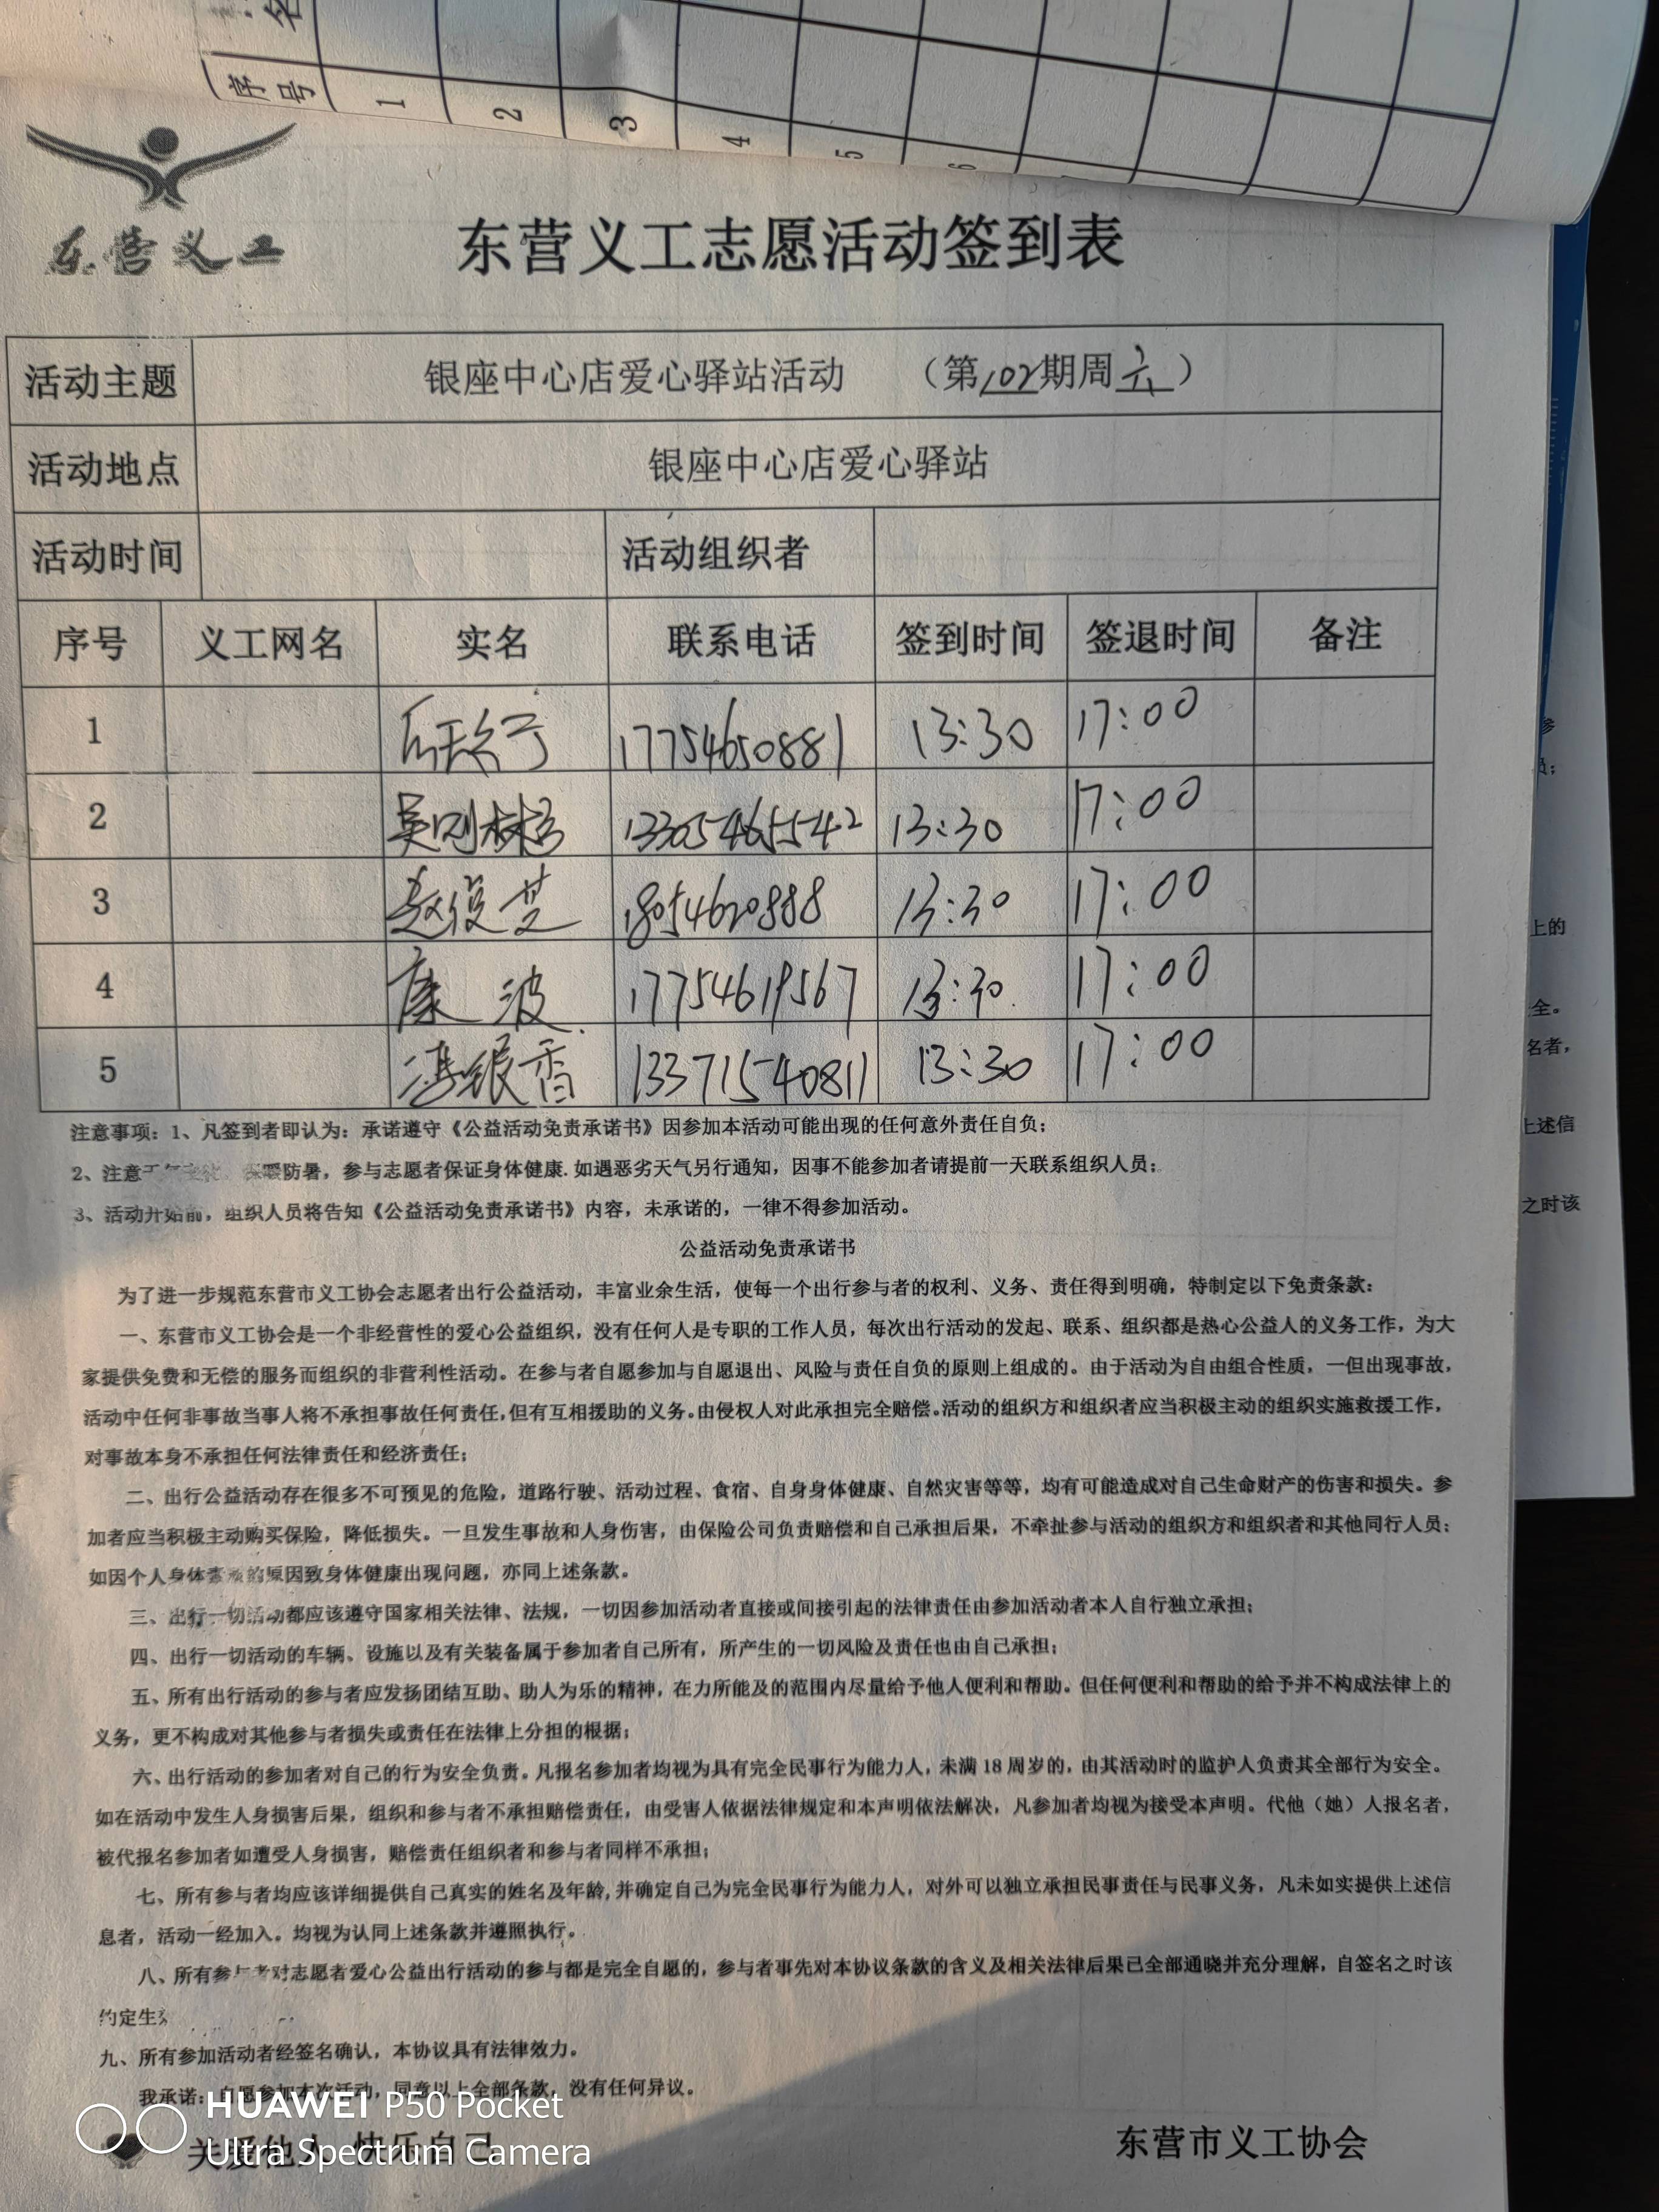 序号 1 2 3 4 5 6
东营义工
东营义工志愿活动签到表
活动主题 银座中心店爱心驿站活动 (第102期周六)
活动地点 银座中心店爱心驿站
活动时间 活动组织者
序号 义工网名 实名 联系电话 签到时间 签退时间 备注
1 17754650881 13:30 17:00
2 13305465542 13:30 17:00
3 赵俊芝 18054620888 13:30 17:00
4 康波 17754619567 13:30 17:00
5 冯银香 13371540811 13:30 17:00
注意事项：1、凡签到者即认为：承诺遵守《公益活动免责承诺书》因参加本活动可能出现的任何意外责任自负；
2、注意 防暑，参与志愿者保证身体健康.如遇恶劣天气另行通知，因事不能参加者请提前一天联系组织人员；
3、活动开始前，组织人员将告知《公益活动免责承诺书》内容，未承诺的，一律不得参加活动。
公益活动免责承诺书
为了进一步规范东营市义工协会志愿者出行公益活动，丰富业余生活，使每一个出行参与者的权利、义务、责任得到明确，特制定以下免责条款：
一、东营市义工协会是一个非经营性的爱心公益组织，没有任何人是专职的工作人员，每次出行活动的发起、联系、组织都是热心公益人的义务工作，为大
家提供免费和无偿的服务而组织的非营利性活动。在参与者自愿参加与自愿退出、风险与责任自负的原则上组成的。由于活动为自由组合性质，一但出现事故，
活动中任何非事故当事人将不承担事故任何责任，但有互相援助的义务。由侵权人对此承担完全赔偿。活动的组织方和组织者应当积极主动的组织实施救援工作，
对事故本身不承担任何法律责任和经济责任；
二、出行公益活动存在很多不可预见的危险，道路行驶、活动过程、食宿、自身身体健康、自然灾害等等，均有可能造成对自己生命财产的伤害和损失。参
加者应当积极主动购买保险，降低损失。一旦发生事故和人身伤害，由保险公司负责赔偿和自己承担后果，不牵扯参与活动的组织方和组织者和其他同行人员；
如因个人身体 的原因致身体健康出现问题，亦同上述条款。
三、出行一切活动都应该遵守国家相关法律、法规，一切因参加活动者直接或间接引起的法律责任由参加活动者本人自行独立承担；
四、出行一切活动的车辆、设施以及有关装备属于参加者自己所有，所产生的一切风险及责任也由自己承担；
五、所有出行活动的参与者应发扬团结互助、助人为乐的精神，在力所能及的范围内尽量给予他人便利和帮助。但任何便利和帮助的给予并不构成法律上的
义务，更不构成对其他参与者损失或责任在法律上分担的根据；
六、出行活动的参加者对自己的行为安全负责。凡报名参加者均视为具有完全民事行为能力人，未满18周岁的，由其活动时的监护人负责其全部行为安全。
如在活动中发生人身损害后果，组织和参与者不承担赔偿责任，由受害人依据法律规定和本声明依法解决，凡参加者均视为接受本声明。代他（她）人报名者，
被代报名参加者如遭受人身损害，赔偿责任组织者和参与者同样不承担；
七、所有参与者均应该详细提供自己真实的姓名及年龄，并确定自己为完全民事行为能力人，对外可以独立承担民事责任与民事义务，凡未如实提供上述信
息者，活动一经加入。均视为认同上述条款并遵照执行。
八、所有参与者对志愿者爱心公益出行活动的参与都是完全自愿的，参与者事先对本协议条款的含义及相关法律后果已全部通晓并充分理解，自签名之时该
约定生
九、所有参加活动者经签名确认，本协议具有法律效力。
我承诺：自愿参加本次活动，同意以上全部条款，没有任何异议。
关爱他人 快乐自己
东营市义工协会
HUAWEI P50 Pocket
Ultra Spectrum Camera
上的
全。
名者，
上述信
之时该